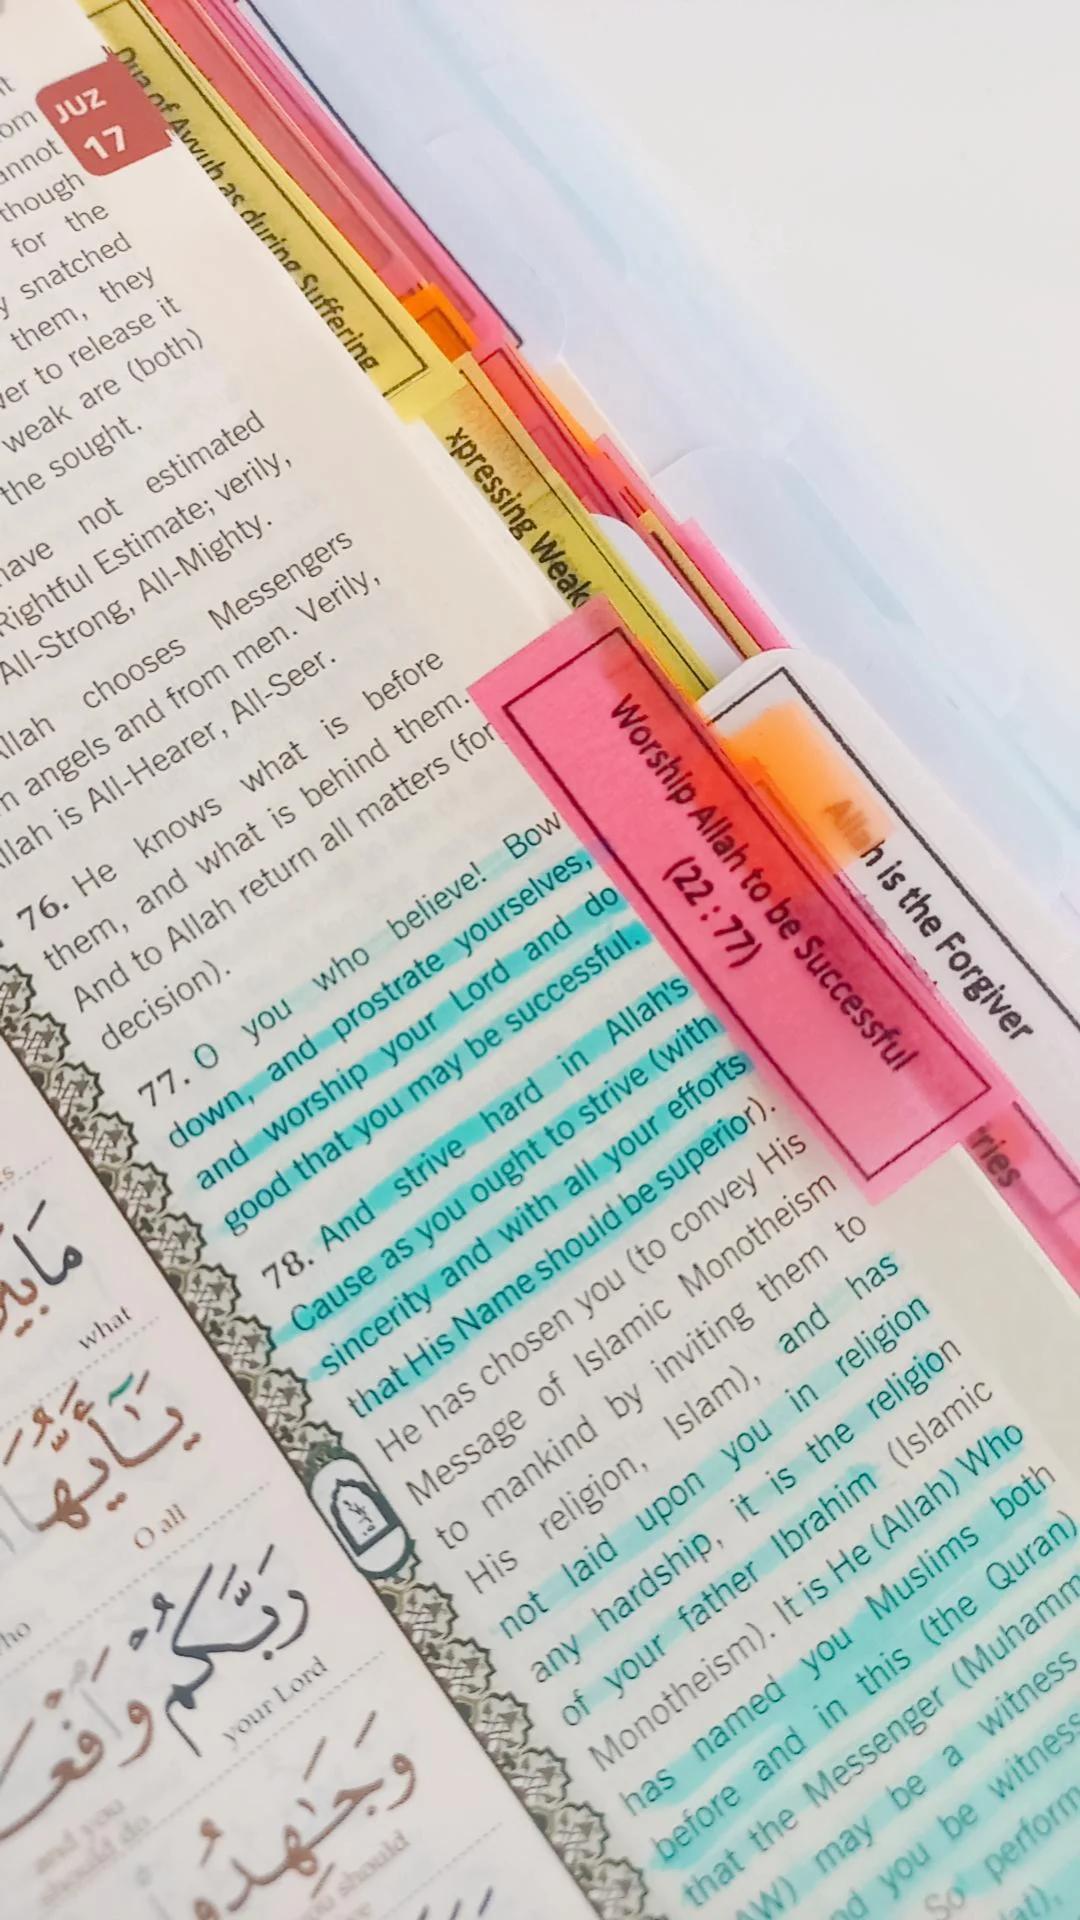 JUZ
17
Dua of Ayyub as during Suffering
xpressing Weak
Worship Allah to be Successful
(22 : 77)
Allah is the Forgiver
ries
annot
though
for the
y snatched
them, they
ver to release it
weak are (both)
the sought.
have not estimated
Rightful Estimate; verily,
All-Strong, All-Mighty.
Allah chooses Messengers
m angels and from men. Verily,
Allah is All-Hearer, All-Seer.
76. He knows what is before
them, and what is behind them.
And to Allah return all matters (for
decision).
77. O you who believe! Bow
down, and prostrate yourselves,
and worship your Lord and do
good that you may be successful.
78. And strive hard in Allah's
Cause as you ought to strive (with
sincerity and with all your efforts
that His Name should be superior).
He has chosen you (to convey His
Message of Islamic Monotheism
to mankind by inviting them to
His religion, Islam), and has
not laid upon you in religion
any hardship, it is the religion
of your father Ibrahim (Islamic
Monotheism). It is He (Allah) Who
has named you Muslims both
before and in this (the Quran)
that the Messenger (Muhamm
AW) may be a witness
nd you be witness
So perform
lat),
what
يَـٰٓأَيُّهَا
O all
رَبَّكُمْ
your Lord
and you
should do
وَجَـٰهِدُوا
should